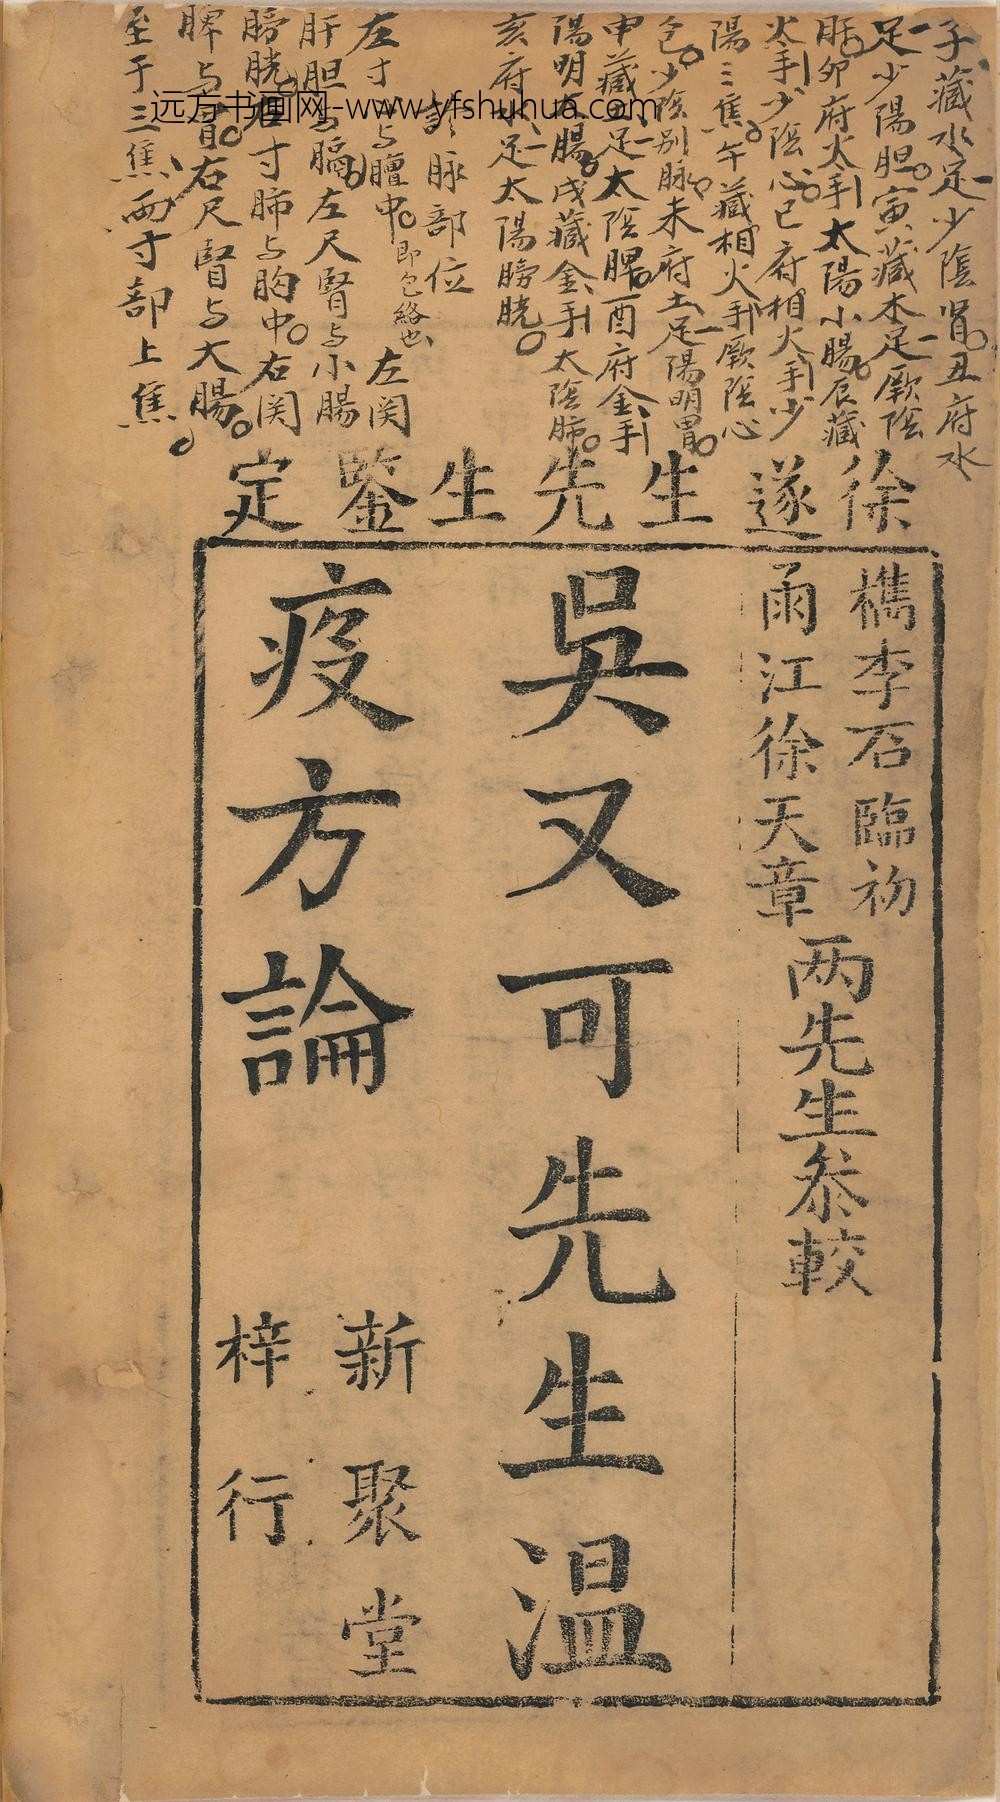 子藏水足少陰腎丑府水
足少陽胆寅藏木足厥陰
肝卯府火手太陽小腸辰藏
火手少陰心巳府相火手少
陽三焦午藏相火手厥陰心
包少陰別脉未府土足陽明胃
申藏土足太陰脾酉府金手
陽明大腸戌藏金手太陰肺
亥府水足太陽膀胱
診脉部位
左寸心与膻中即包絡也左関
肝胆与膈左尺腎与小腸
膀胱右寸肺与胸中右関
脾与胃右尺腎与大腸
至于三焦兩寸部上焦
远方书画网-www.yfshuhua.com
徐遂生先生鑒定
檇李石臨初
雨江徐天章
两先生叅較
吳又可先生溫
疫方論
新聚堂
梓行